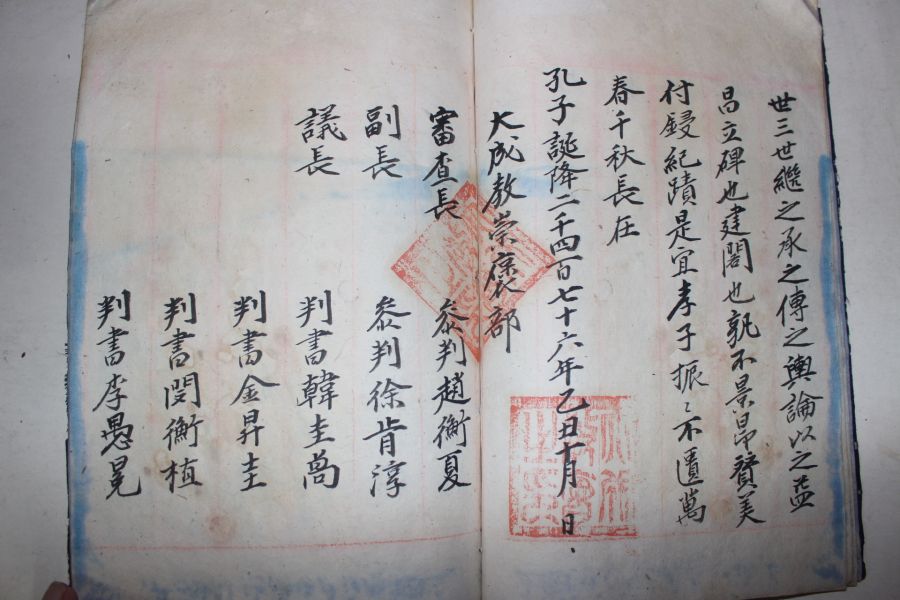 世三世繼之承之傳之輿論以之益
昌立碑也建閣也孰不景昂贊美
付鋟紀蹟是宜孝子振〻不匱萬
春千秋長在
孔子誕降二千四百七十六年乙丑十月 日
大成教崇褒部
審査長 叅判趙衡夏
副長 叅判徐肯淳
議長 判書韓圭卨
判書金昇圭
判書閔衡植
判書李愚冕